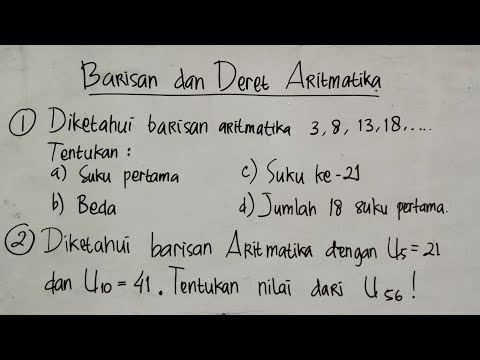 Barisan dan Deret Aritmatika
① Diketahui barisan aritmatika 3, 8, 13, 18, ....
Tentukan :
a) Suku pertama c) Suku ke-21
b) Beda d) Jumlah 18 suku pertama.
② Diketahui barisan Aritmatika dengan U₅ = 21
dan U₁₀ = 41. Tentukan nilai dari U₅₆ !